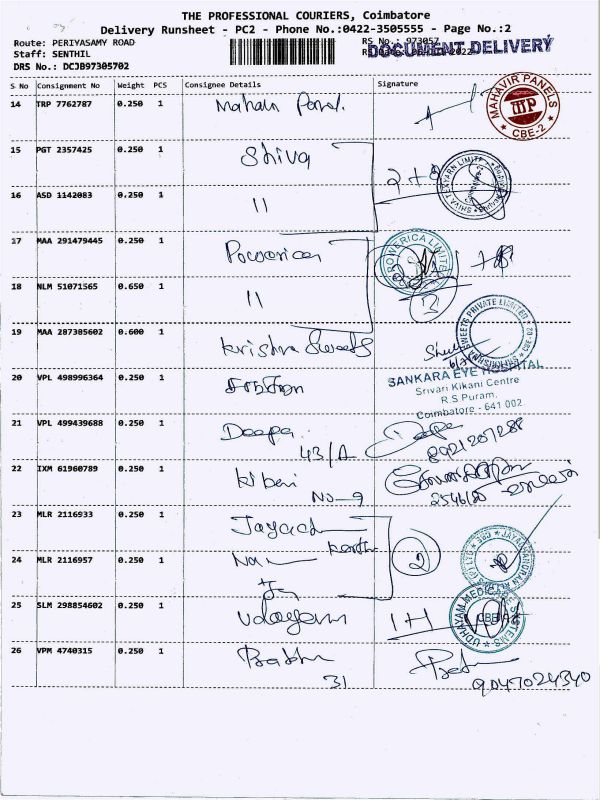 THE PROFESSIONAL COURIERS, Coimbatore
Delivery Runsheet - PC2 - Phone No.:0422-3505555 - Page No.:2
Route: PERIYASAMY ROAD
RS No.: 973057
DOCUMENT DELIVERY
Staff: SENTHIL
DRS No.: DCJB97305702
S No Consignment No Weight PCS Consignee Details Signature
14 TRP 7762787 0.250 1
MAHAVIR PANELS
MP
CBE-2
15 PGT 2357425 0.250 1 Shiva
16 ASD 1142083 0.250 1 11
17 MAA 291479445 0.250 1
POWERICA LIMITED
18 NLM 51071565 0.650 1 11
3
19 MAA 287385602 0.600 1 Krishna Sweets
SWEETS PRIVATE LIMITED
20 VPL 498996364 0.250 1
SANKARA EYE HOSPITAL
Srivari Kikani Centre
R.S Puram,
Coimbatore - 641 002
21 VPL 499439688 0.250 1 Deepa
43/A
Deepa
8921207288
22 IXM 61960789 0.250 1
No-9
23 MLR 2116933 0.250 1
24 MLR 2116957 0.250 1
2
25 SLM 298854602 0.250 1 Udayam
1+1
UDHAYAM MEDICAL SYSTEMS
CBE
26 VPM 4740315 0.250 1 Prabhu
31
9047024340